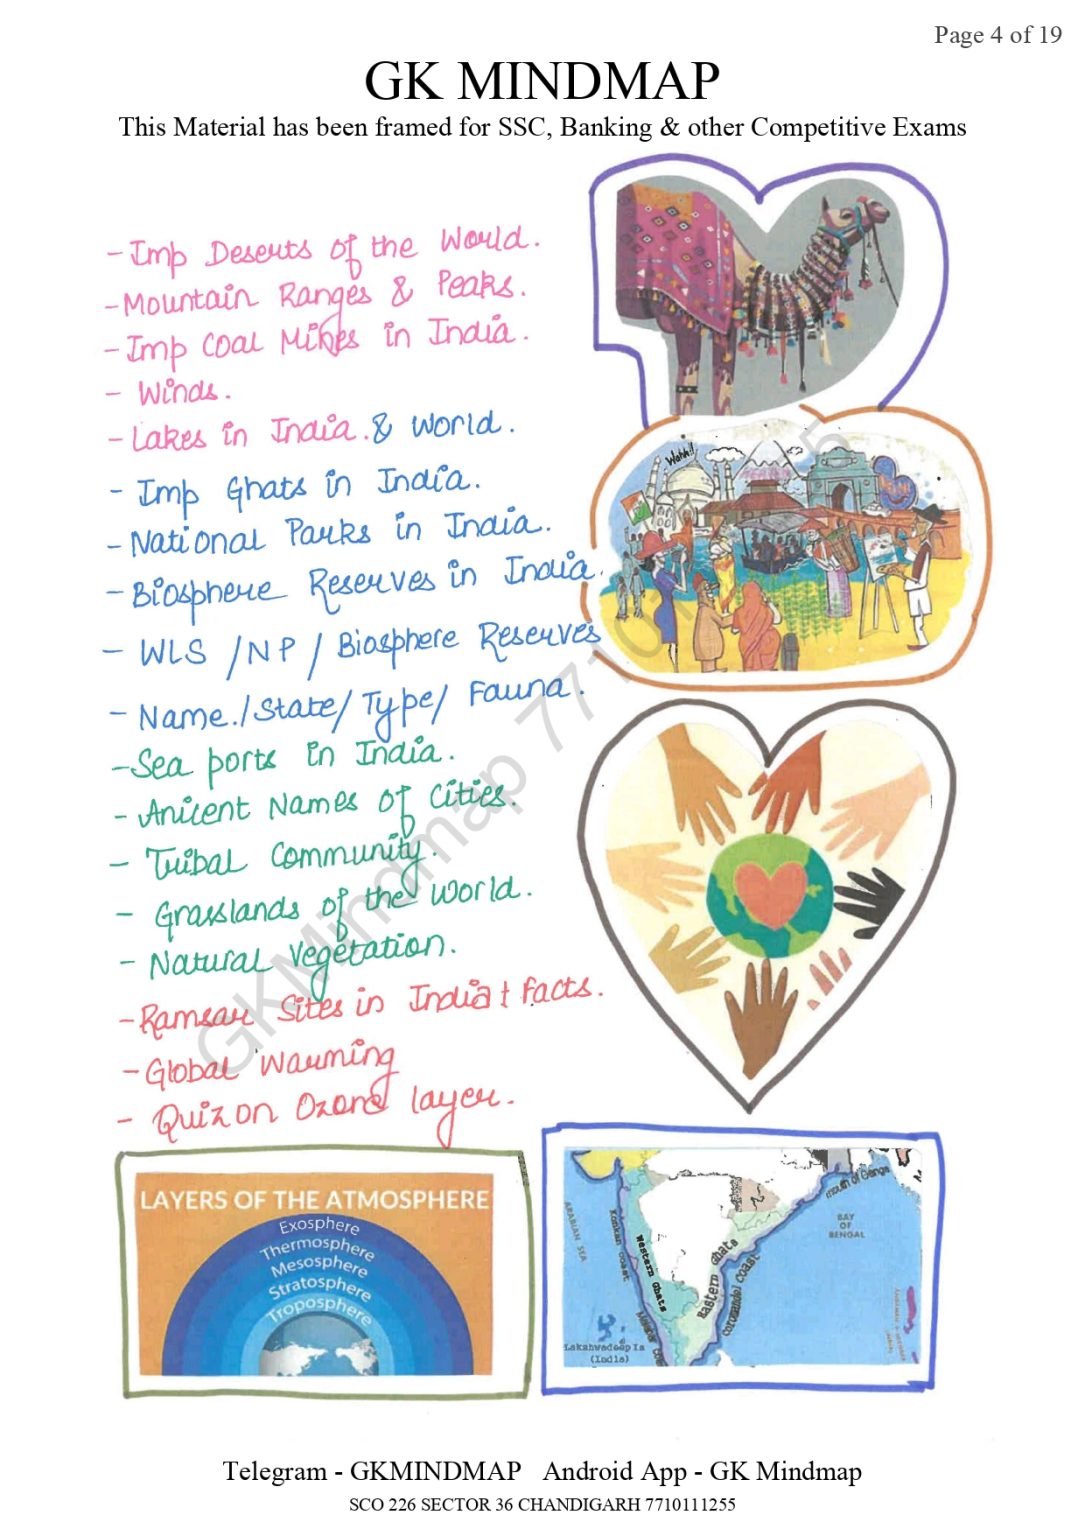 Page 4 of 19
GK MINDMAP
This Material has been framed for SSC, Banking & other Competitive Exams
- Imp Deserts of the World.
- Mountain Ranges & Peaks.
- Imp Coal Mines in India.
- Winds.
- Lakes in India. & World.
- Imp Ghats in India.
- National Parks in India.
- Biosphere Reserves in India.
- WLS / NP / Biosphere Reserves
- Name. / State / Type / Fauna.
- Sea ports in India.
- Anicent Names of Cities.
- Tribal Community.
- Grasslands of the World.
- Natural Vegetation.
- Ramsar Sites in India + Facts.
- Global Warming
- Quiz on Ozone layer.
Wahh!!
LAYERS OF THE ATMOSPHERE
Exosphere
Thermosphere
Mesosphere
Stratosphere
Troposphere
ARABIAN SEA
Konkan coast
Western Ghats
Eastern Ghats
Coromandel Coast
Mouth of Ganga
BAY
OF
BENGAL
Lakshadweep Is
(India)
GKMindmap 7710
Telegram - GKMINDMAP Android App - GK Mindmap
SCO 226 SECTOR 36 CHANDIGARH 7710111255